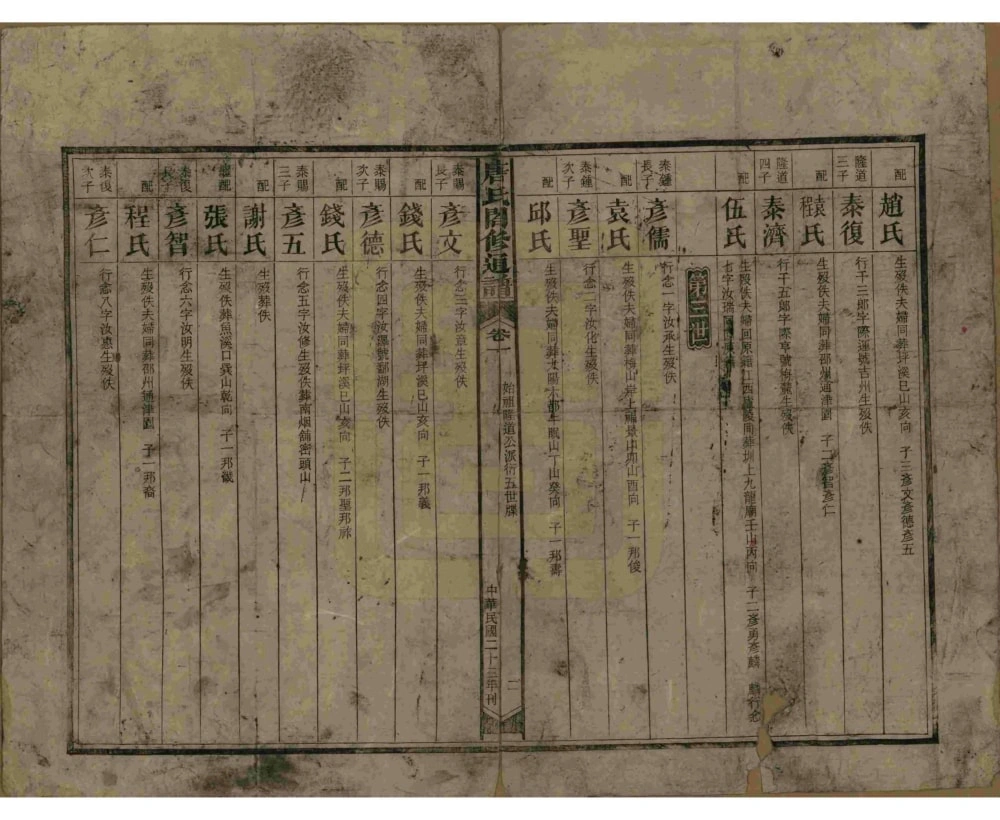 趙氏
生歿佚夫婦同葬坪溪巳山亥向 子三彥文彥德彥五
隆道三子
泰復
行十三郎字際運號吉州生歿佚
配
程氏
生歿佚夫婦同葬邵州通津園 子二彥智彥仁
隆道四子
泰濟
行十五郎字際亨號梅麓生歿佚
配
伍氏
生歿佚夫婦回原籍江西廬陵同葬圳上九龍廟壬山丙向 子二彥勇彥麟 麟行念
七字汝瑞
第三世
泰鍾長子
彥儒
行念一字汝承生歿佚
配
袁氏
生歿佚夫婦同葬梅山 子一邦俊
泰鍾次子
彥聖
行念二字汝化生歿佚
配
邱氏
生歿佚夫婦同葬 丁山癸向 子一邦壽
唐氏闔修通譜
卷一
始祖隆道公派衍五世牒
二
中華民國二十三年刊
泰賜長子
彥文
行念三字汝章生歿佚
配
錢氏
生歿佚夫婦同葬坪溪巳山亥向 子一邦義
泰賜次子
彥德
行念四字汝 號鄒湖生歿佚
配
錢氏
生歿佚夫婦同葬坪溪巳山亥向 子二邦聖邦
泰賜三子
彥五
行念五字汝修生歿佚葬南烟舖密頭山
配
謝氏
生歿葬佚
繼配
張氏
生歿佚葬魚溪口巽山乾向 子一邦
泰復長子
彥智
行念六字汝明生歿佚
配
程氏
生歿佚夫婦同葬邵州通津園 子一邦裔
泰復次子
彥仁
行念八字汝惠生歿佚